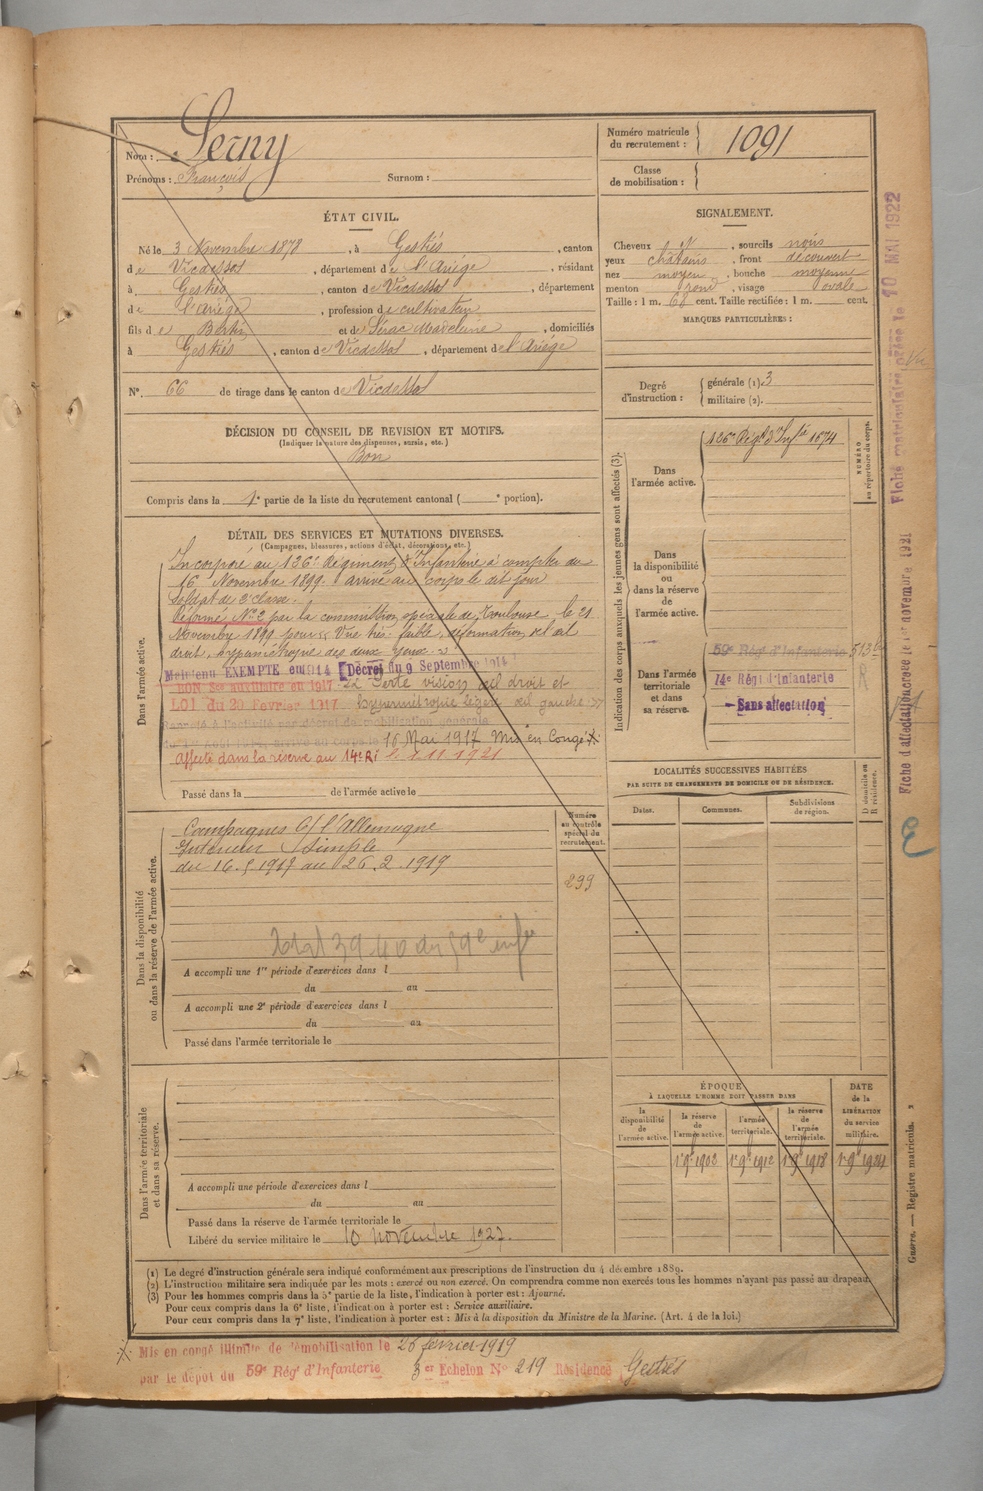 Nom : Serny
Prénoms : François Surnom :
Numéro matricule du recrutement : 1091
Classe de mobilisation :
ÉTAT CIVIL.
Né le 3 Novembre 1878, à Gestiés, canton
de Vicdessos, département de l'Ariége, résidant
à Gestiés, canton de Vicdessos, département
de l'Ariége, profession de cultivateur
fils de Bertin et de Sérac Madeleine, domiciliés
à Gestiés, canton de Vicdessos, département de l'Ariége
N°. 66 de tirage dans le canton de Vicdessos
SIGNALEMENT.
Cheveux N, sourcils noirs
yeux châtains, front découvert
nez moyen, bouche moyenne
menton rond, visage ovale
Taille : 1 m. 68 cent. Taille rectifiée : 1 m. cent.
MARQUES PARTICULIÈRES :
Degré d'instruction : générale (1). 3
militaire (2).
DÉCISION DU CONSEIL DE REVISION ET MOTIFS.
(Indiquer la nature des dispenses, sursis, etc.)
Bon
Compris dans la 1e partie de la liste du recrutement cantonal ( e portion).
DÉTAIL DES SERVICES ET MUTATIONS DIVERSES.
(Campagnes, blessures, actions d'éclat, décorations, etc.)
Dans l'armée active.
Incorporé au 126e Régiment d'Infanterie à compter du
16 Novembre 1899. arrivé au corps le dit jour
Soldat de 2e classe.
Réformé N° 2 par la commission spéciale de Toulouse le 21
Novembre 1899 pour « Vue très faible, déformation œil
droit, hypermétropie des deux yeux »
Maintenu EXEMPTE en 1914 [Décret du 9 Septembre 1914]
BON Sce auxiliaire en 1917 Perte vision œil droit et
LOI du 20 Février 1917 hypermétropie légère œil gauche »
Rappelé à l'activité par décret de mobilisation générale
16 Mai 1917 Mis en Congé X
Affecté dans la réserve au 14e RI le 1.11.1921
Passé dans la de l'armée active le
Indication des corps auxquels les jeunes gens sont affectés (3).
NUMÉRO au répertoire du corps.
Dans l'armée active.
126e Régt d'Infie 1674
Dans la disponibilité ou dans la réserve de l'armée active.
Dans l'armée territoriale et dans sa réserve.
59e Rég d'Infanterie
14e Régt d'Infanterie R
Sans affectation
LOCALITÉS SUCCESSIVES HABITÉES
PAR SUITE DE CHANGEMENTS DE DOMICILE OU DE RÉSIDENCE.
Dates. Communes. Subdivisions de région. D domicile ou R résidence.
Dans la disponibilité ou dans la réserve de l'armée active.
Numéro au contrôle spécial du recrutement.
Campagnes C/ l'Allemagne
Intérieur Simple
du 16.5.1917 au 26.2.1919
299
39 40 du 59e infe
A accompli une 1re période d'exercices dans l
du au
A accompli une 2e période d'exercices dans l
du au
Passé dans l'armée territoriale le
Dans l'armée territoriale et dans sa réserve.
A accompli une période d'exercices dans l
du au
Passé dans la réserve de l'armée territoriale le
Libéré du service militaire le 10 novembre 1927.
ÉPOQUE
À LAQUELLE L'HOMME DOIT PASSER DANS
DATE de la LIBÉRATION du service militaire.
la disponibilité de l'armée active. la réserve de l'armée active. l'armée territoriale. la réserve de l'armée territoriale.
(1) Le degré d'instruction générale sera indiqué conformément aux prescriptions de l'instruction du 4 décembre 1889.
(2) L'instruction militaire sera indiquée par les mots : exercé ou non exercé. On comprendra comme non exercés tous les hommes n'ayant pas passé au drapeau.
(3) Pour les hommes compris dans la 5e partie de la liste, l'indication à porter est : Ajourné.
Pour ceux compris dans la 6e liste, l'indication à porter est : Service auxiliaire.
Pour ceux compris dans la 7e liste, l'indication à porter est : Mis à la disposition du Ministre de la Marine. (Art. 4 de la loi.)
X Mis en congé illimité de démobilisation le 26 février 1919
par le dépôt du 59e Régt d'Infanterie 3er Echelon N° 219 Résidence Gestiés
Fiche matriculaire créée le 10 MAI 1922
Fiche d'affectation créée le 1er novembre 1921
E
Guerre. — Registre matricule. 2